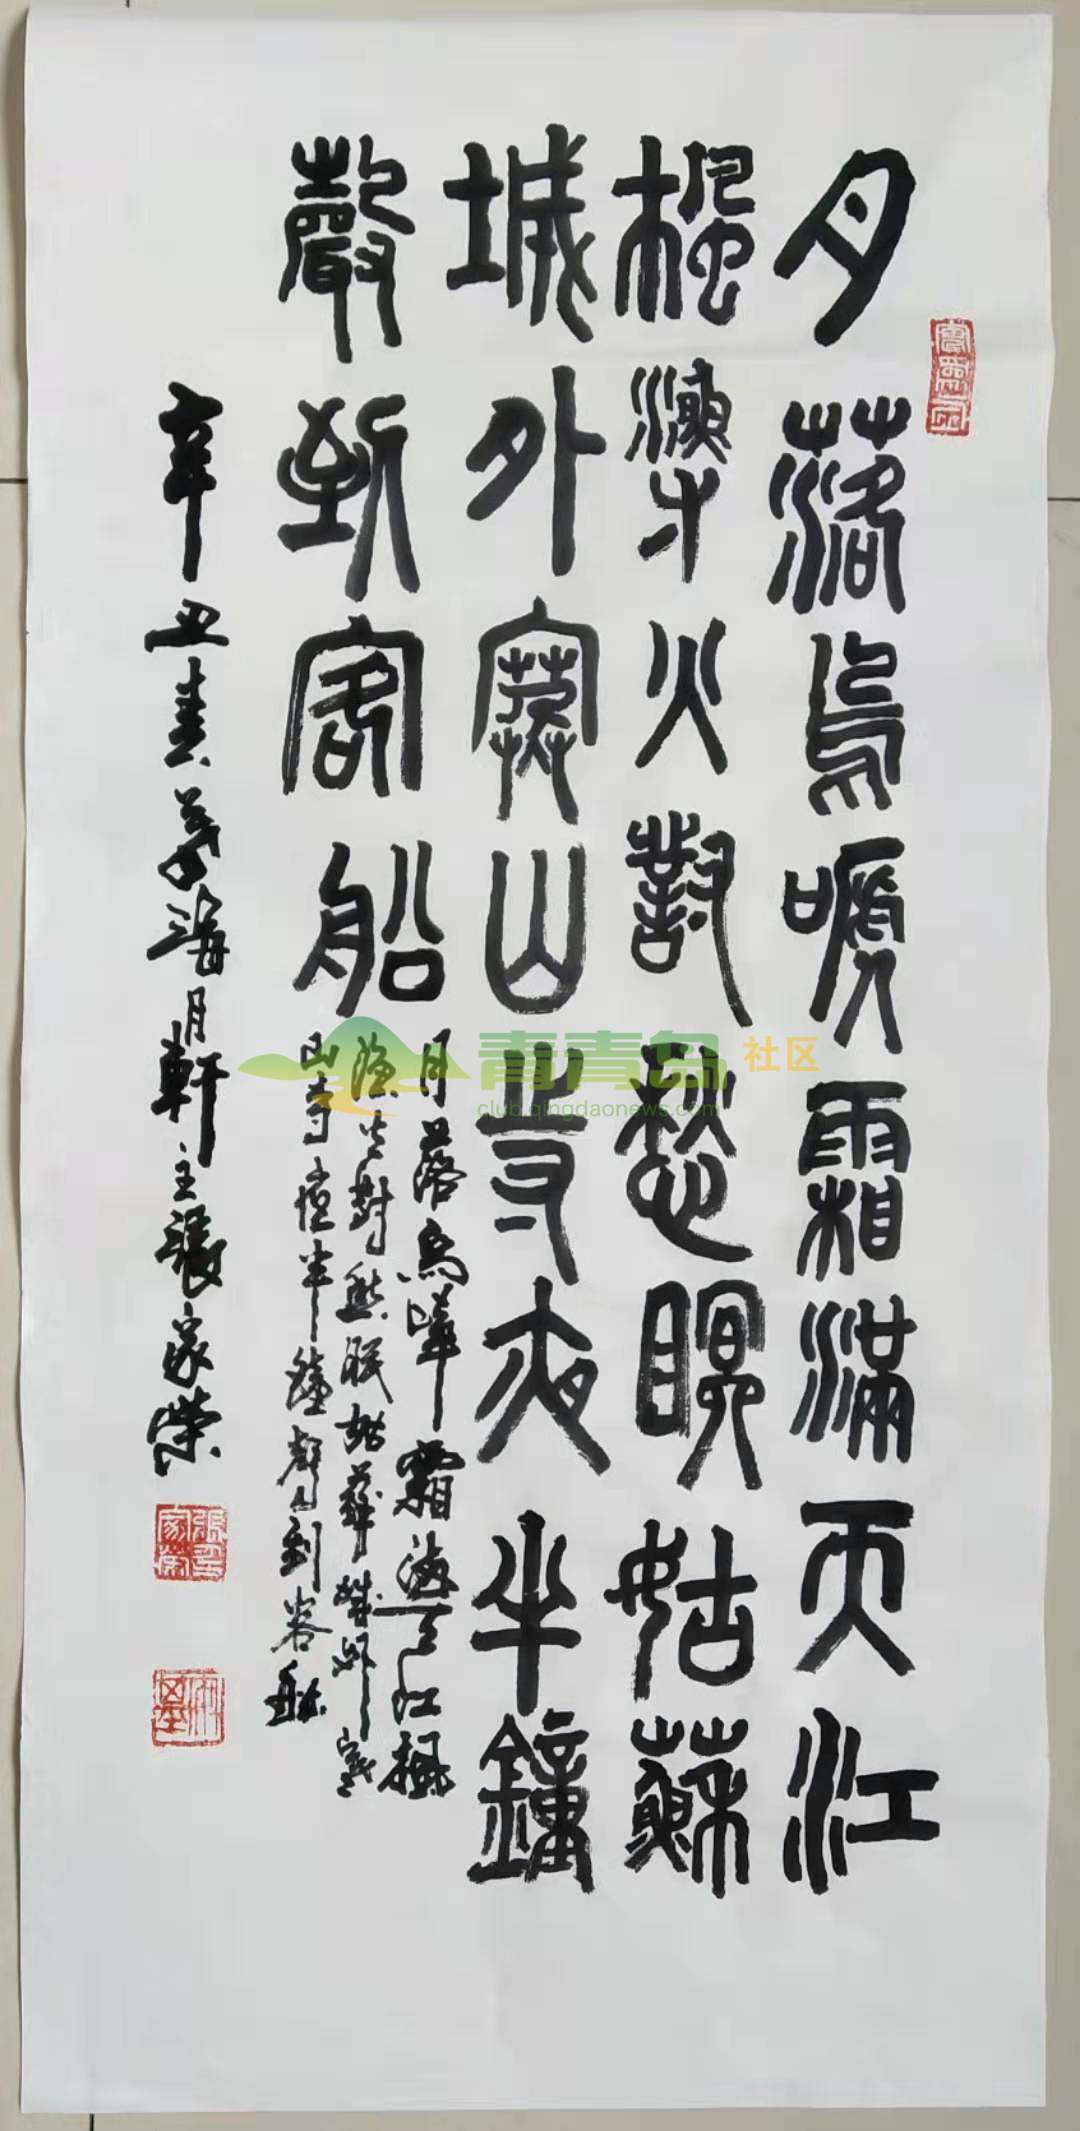 月落烏嗁霜滿天江
楓漁火對愁眠姑蘇
城外寒山寺夜半鐘
聲到客船
月落烏啼霜滿天江楓
漁火對愁眠姑蘇城外寒
山寺夜半鐘聲到客船
辛丑春海月軒主張家榮
張印家榮
青青岛社区
club.qingdaonews.com